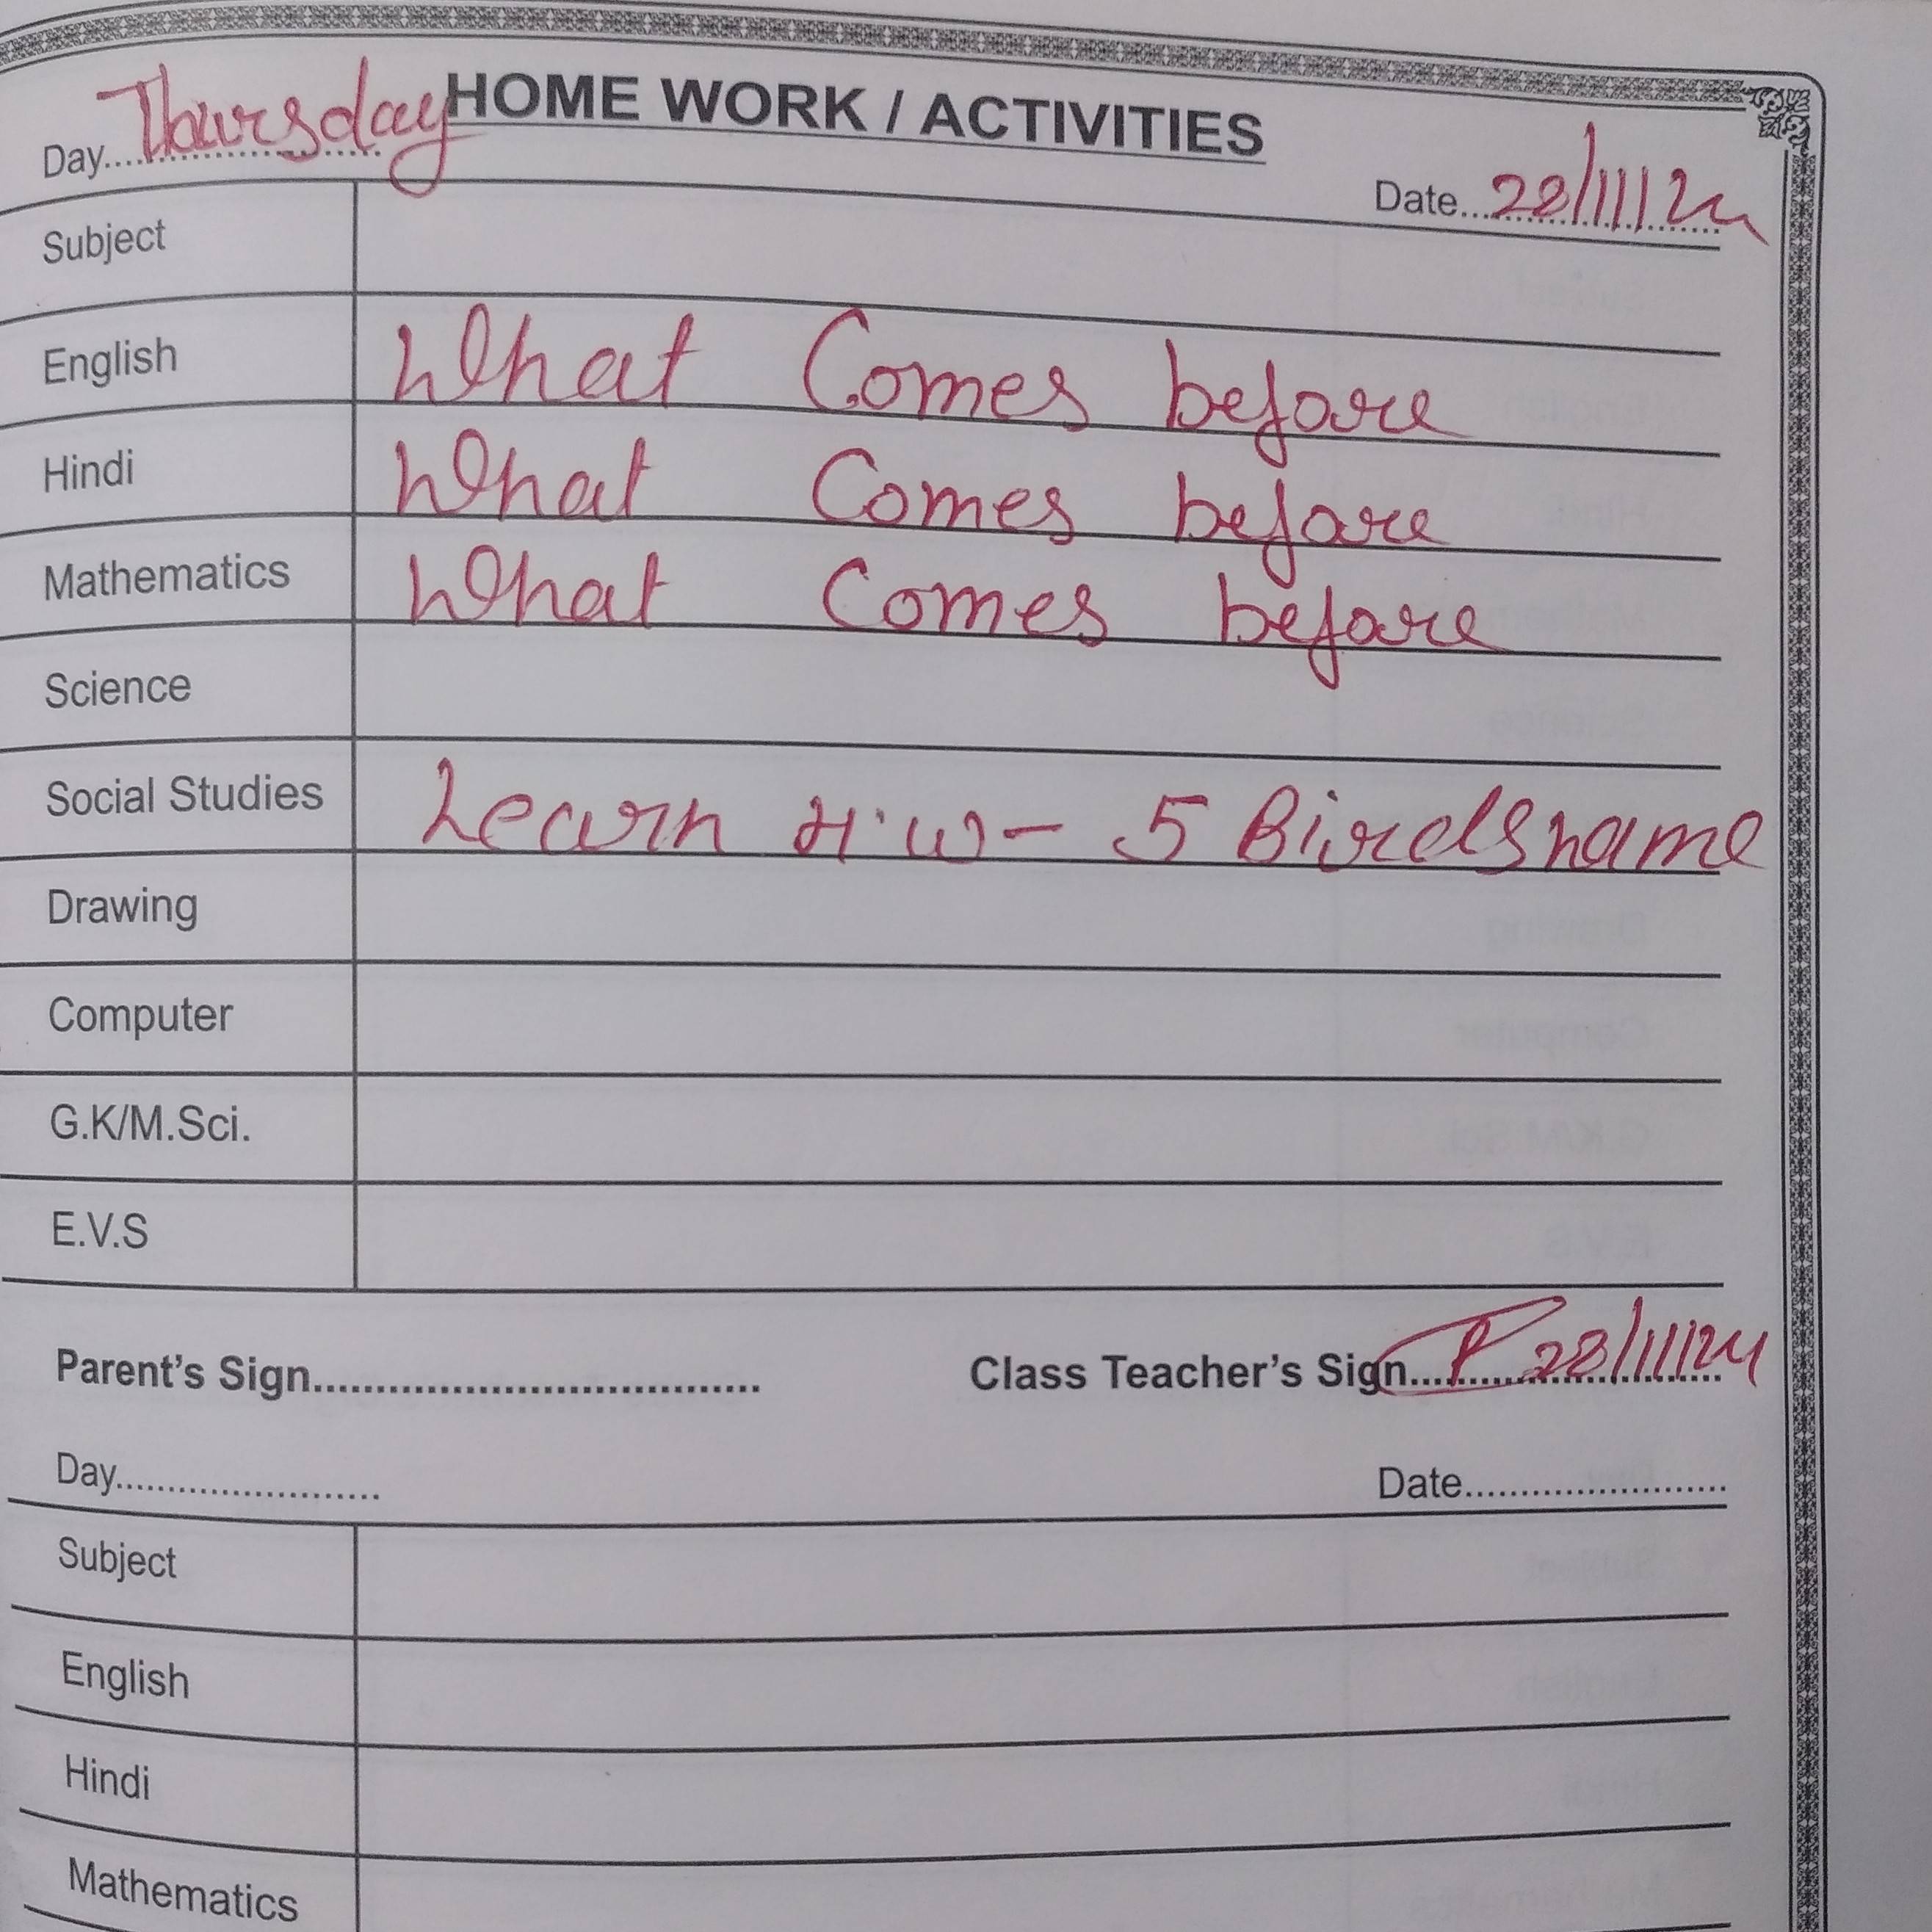 HOME WORK / ACTIVITIES
Day....Thursday
Date...28/11/24
Subject
English What Comes before
Hindi What Comes before
Mathematics What Comes before
Science
Social Studies Learn H.W - 5 Birds name
Drawing
Computer
G.K/M.Sci.
E.V.S
Parent's Sign.................................... Class Teacher's Sign....28/11/24
Day........................ Date........................
Subject
English
Hindi
Mathematics